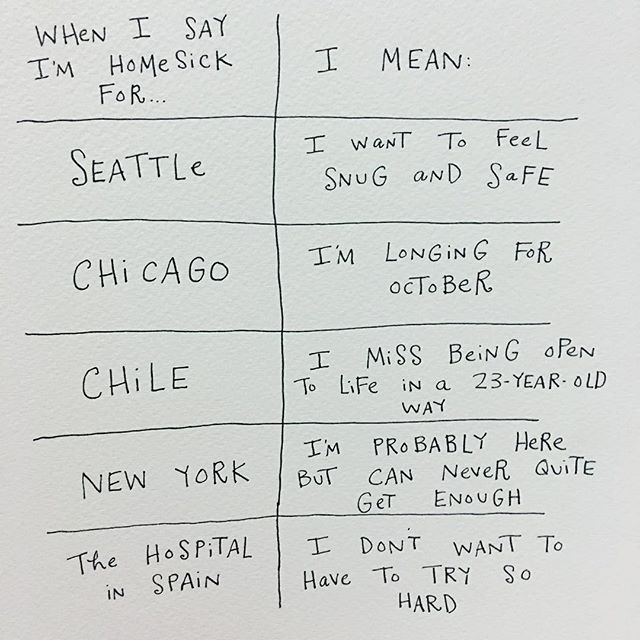 WHEN I SAY
I'M HOMESICK
FOR...
I MEAN:
SEATTLE
I WANT TO FEEL
SNUG AND SAFE
CHICAGO
I'M LONGING FOR
OCTOBER
CHILE
I MISS BEING OPEN
TO LIFE IN A 23-YEAR-OLD
WAY
NEW YORK
I'M PROBABLY HERE
BUT CAN NEVER QUITE
GET ENOUGH
The HOSPITAL
IN SPAIN
I DON'T WANT TO
Have To TRY SO
HARD